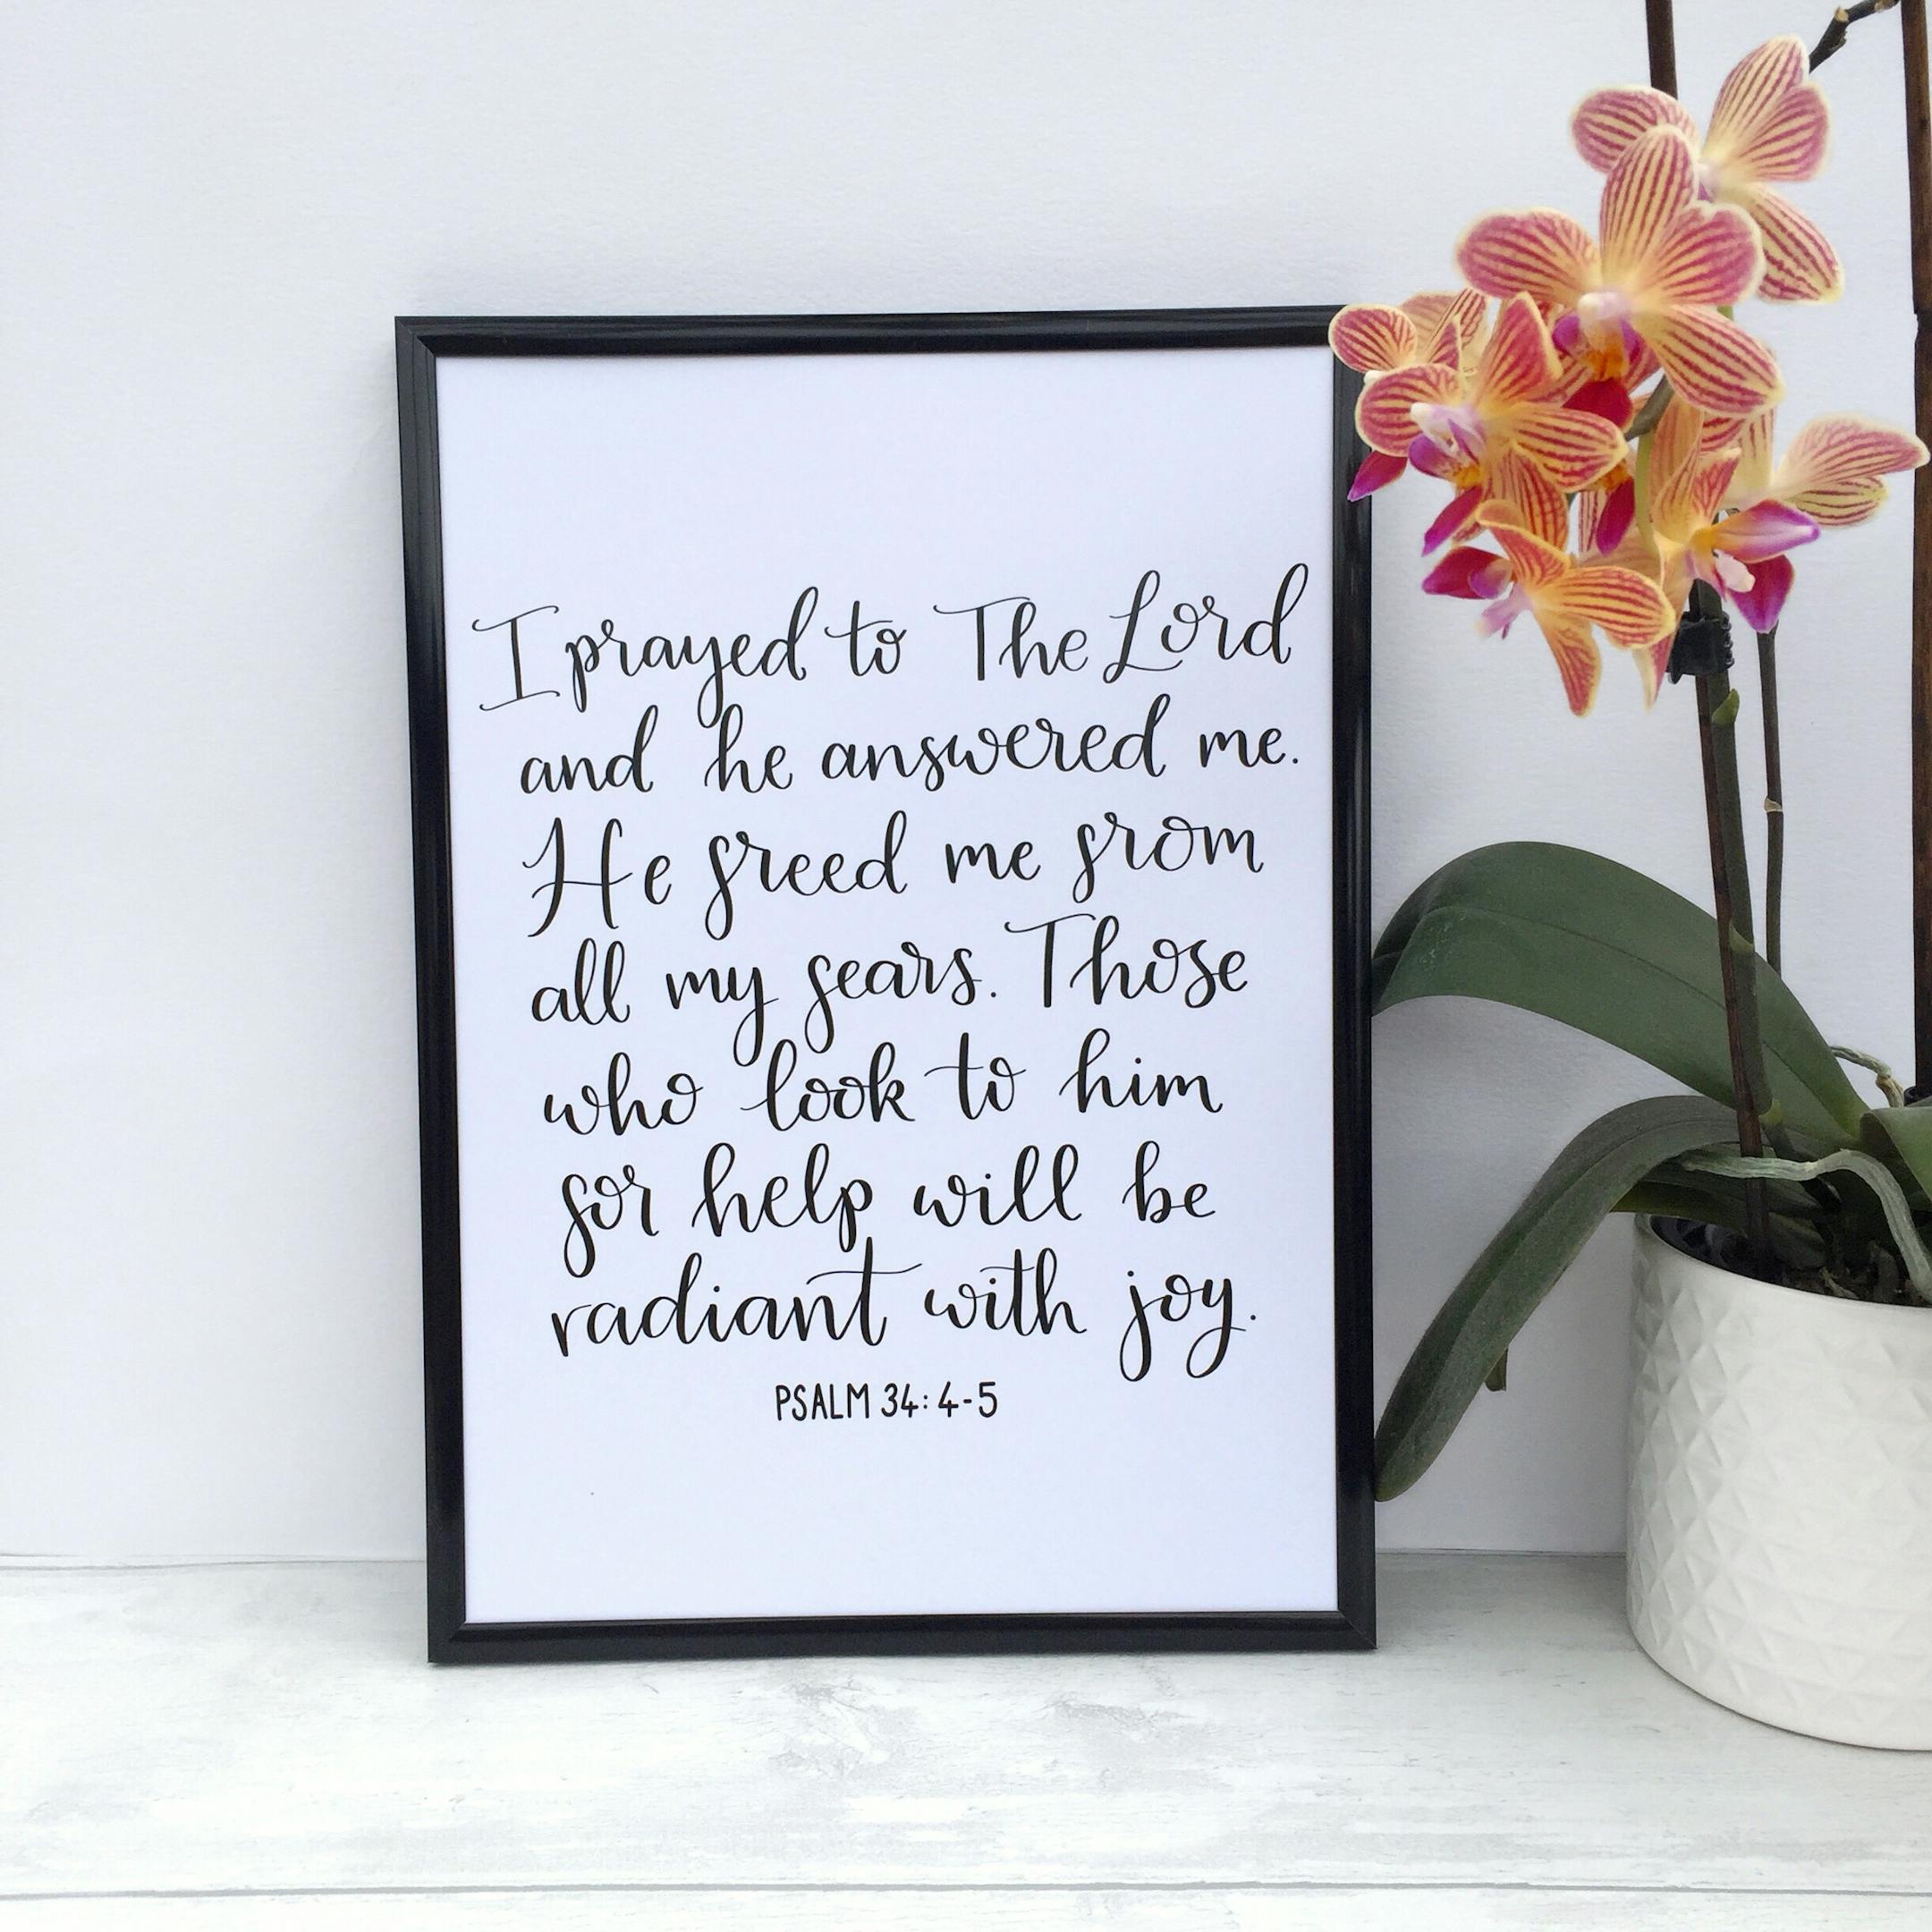 I prayed to The Lord
and he answered me.
He freed me from
all my fears. Those
who look to him
for help will be
radiant with joy.
PSALM 34:4-5